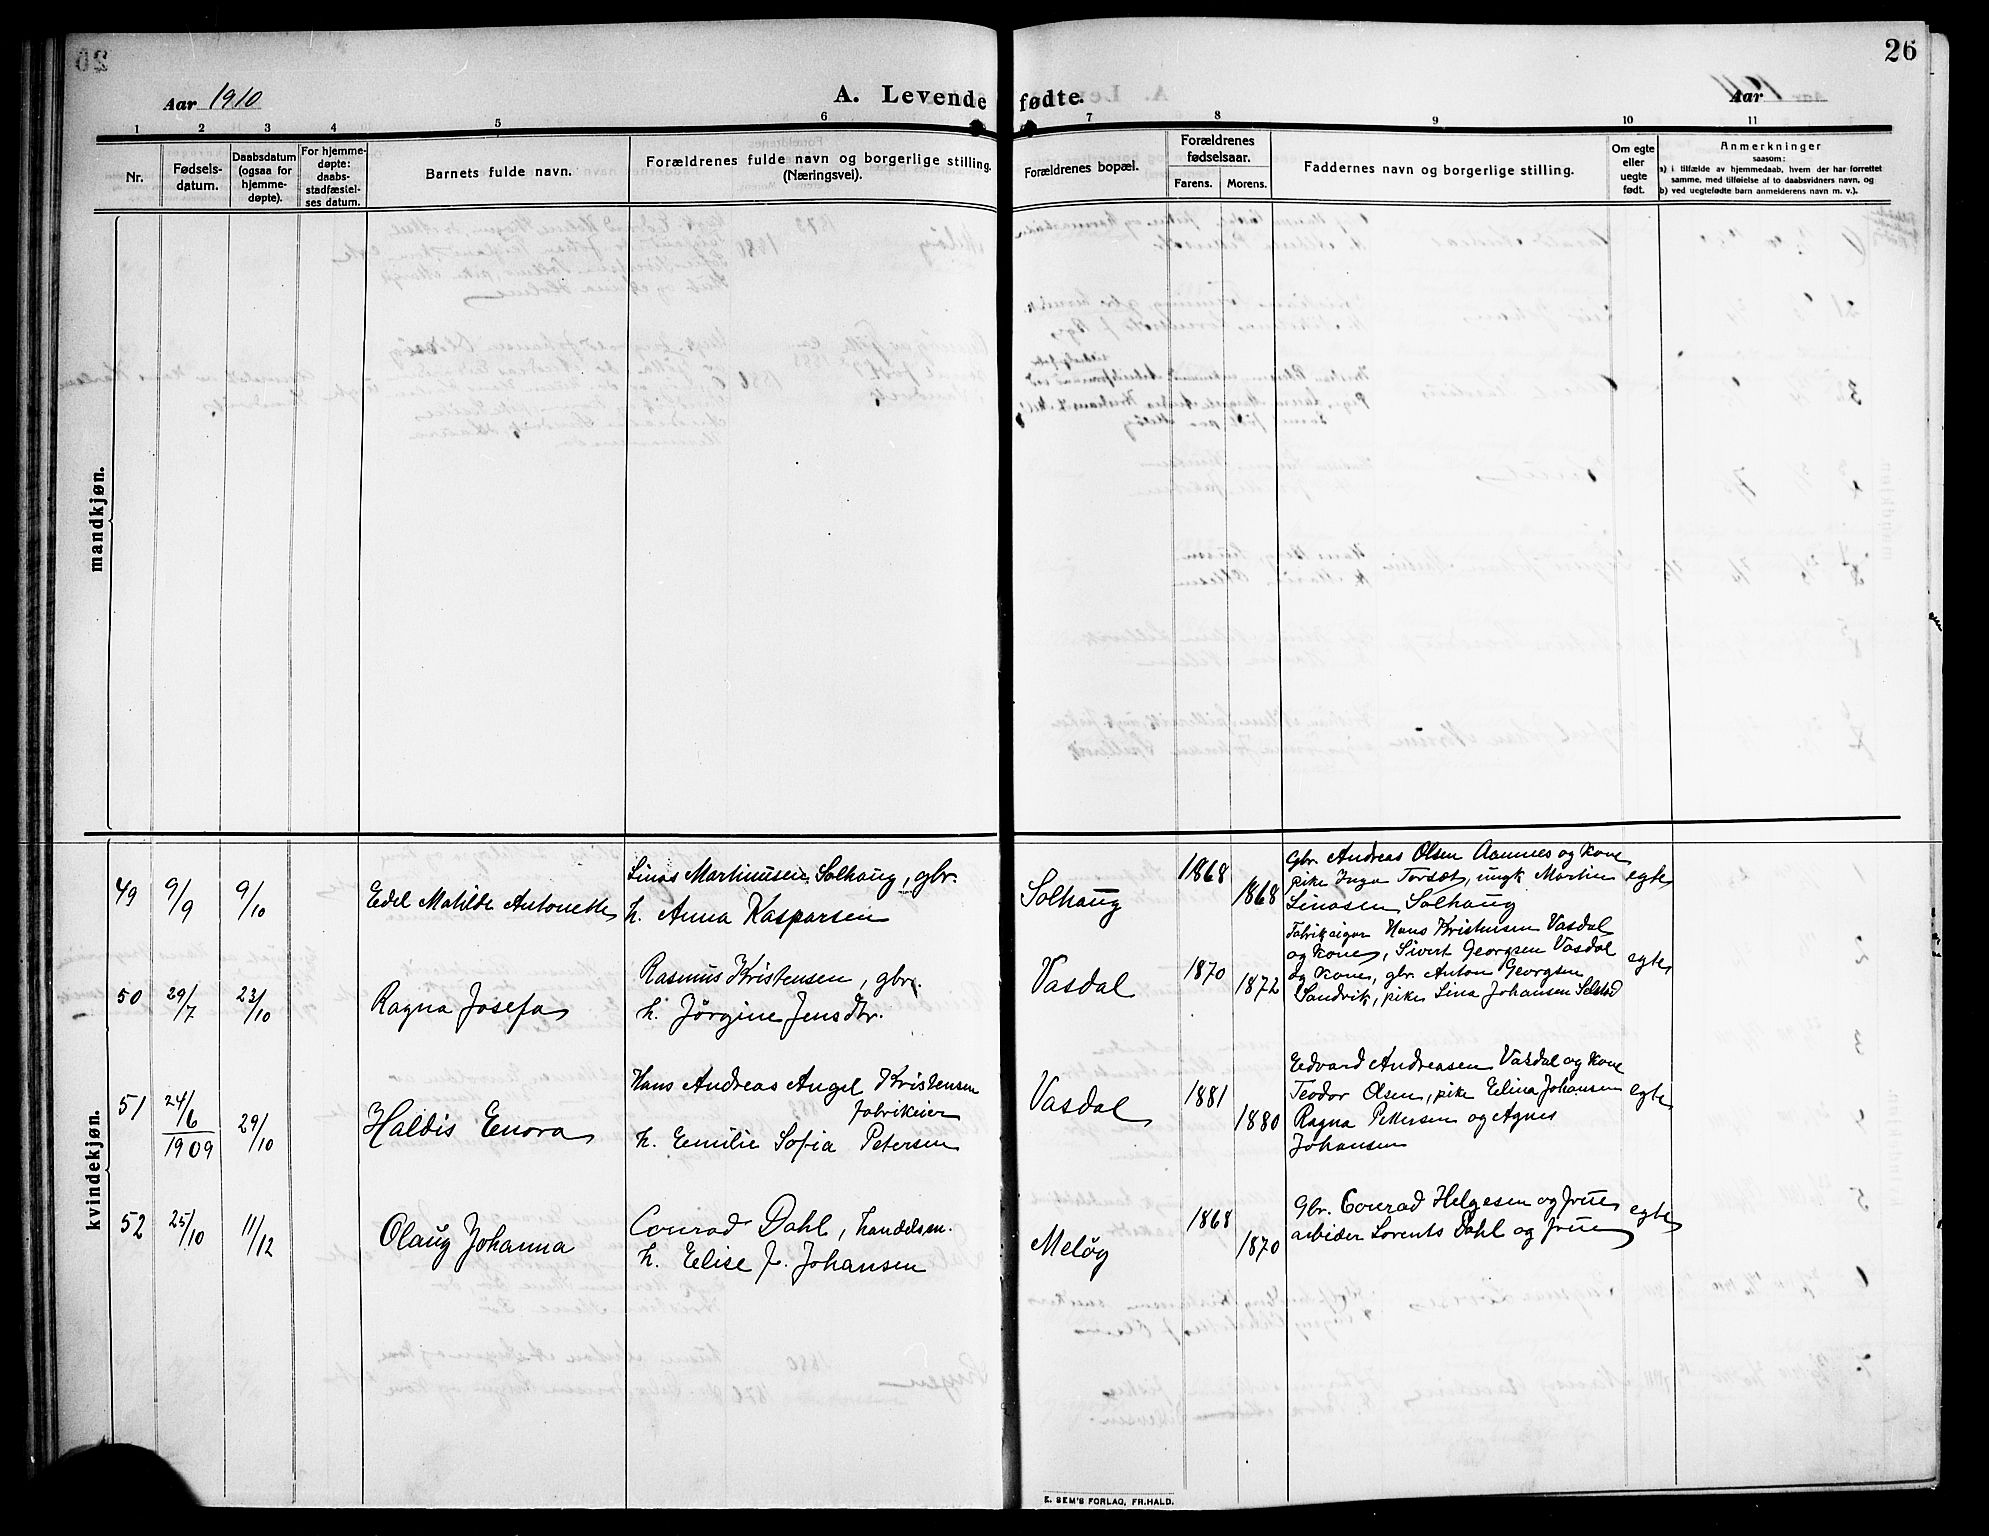 26
Aar 1910
A. Levende fødte.
Aar
1 2 3 4 5 6 7 8 9 10 11
Nr.
Fødsels-
datum.
Daabsdatum
(ogsaa for
hjemme-
døpte).
For hjemme-
døpte:
daabs-
stadfæstel-
ses datum.
Barnets fulde navn.
Forældrenes fulde navn og borgerlige stilling.
(Næringsvei).
Forældrenes bopæl.
Forældrenes
fødselsaar.
Farens. Morens.
Faddernes navn og borgerlige stilling.
Om egte
eller
uegte
født.
Anmerkninger
saasom:
a) i tilfælde av hjemmedaab, hvem der har forrettet
samme, med tilføielse af to daabsvidners navn, og
b) ved uegtefødte barn anmelderens navn m. v.).
mandkjøn.
kvindekjøn.
49 9/9 9/10 Edel Matilde Antonette
Linas Martinusen Solhaug, gbr.
h. Anna Kasparsen
Solhaug 1868 1868
Gbr. Andreas Olsen Aamnes og kone
pike Inga Torsæt, ungk Martin
Linasen Solhaug
egte
50 29/7 23/10 Ragna Josefa
Rasmus Kristensen, gbr.
h. Jørgine Jensdtr.
Vasdal 1870 1872
Fabrikeigar Hans Kristensen Vasdal
og kone, Sivert Georgsen Vasdal
og kone, gbr. Anton Georgsen
Sandvik, pike Lina Johansen Selstad
egte
51 24/6 1909 29/10 Haldis Enora
Hans Andreas Angel Kristensen
fabrikeier
h. Emilie Sofia Petersen
Vasdal 1881 1880
Edvard Andreasen Vasdal og kone
Teodor Olsen, pike Elina Johansen
Ragna Pettersen og Agnes
Johansen
egte
52 25/10 11/12 Olaug Johanna
Conrad Dahl, handelsm.
h. Elise J. Johansen
Meløy 1868 1870
Gbr. Conrad Helgesen og frue
arbeider Lorents Dahl og frue
egte
E. SEM'S FORLAG, FR.HALD.